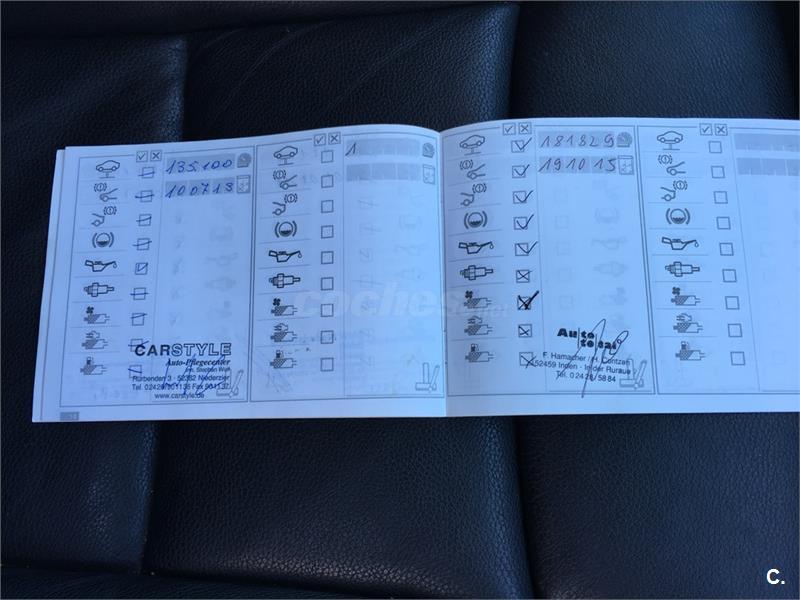 135.100
100713
CARSTYLE
Auto-Pflegecenter
Inh. Stephan Wolf
Rurbenden 3 - 52382 Niederzier
www.carstyle.de
1
181829
191015
Auto
total
F. Hamacher / H. Contzen
52459 Inden - In der Ruraue
Tel. 0 24 28 / 58 84
coches.net
C.